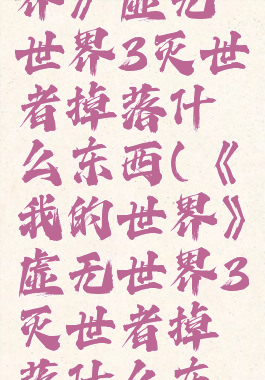 界》虚无
世界3灭世
者掉落什
么东西(《
我的世界》
虚无世界3
灭世者掉
落什么东